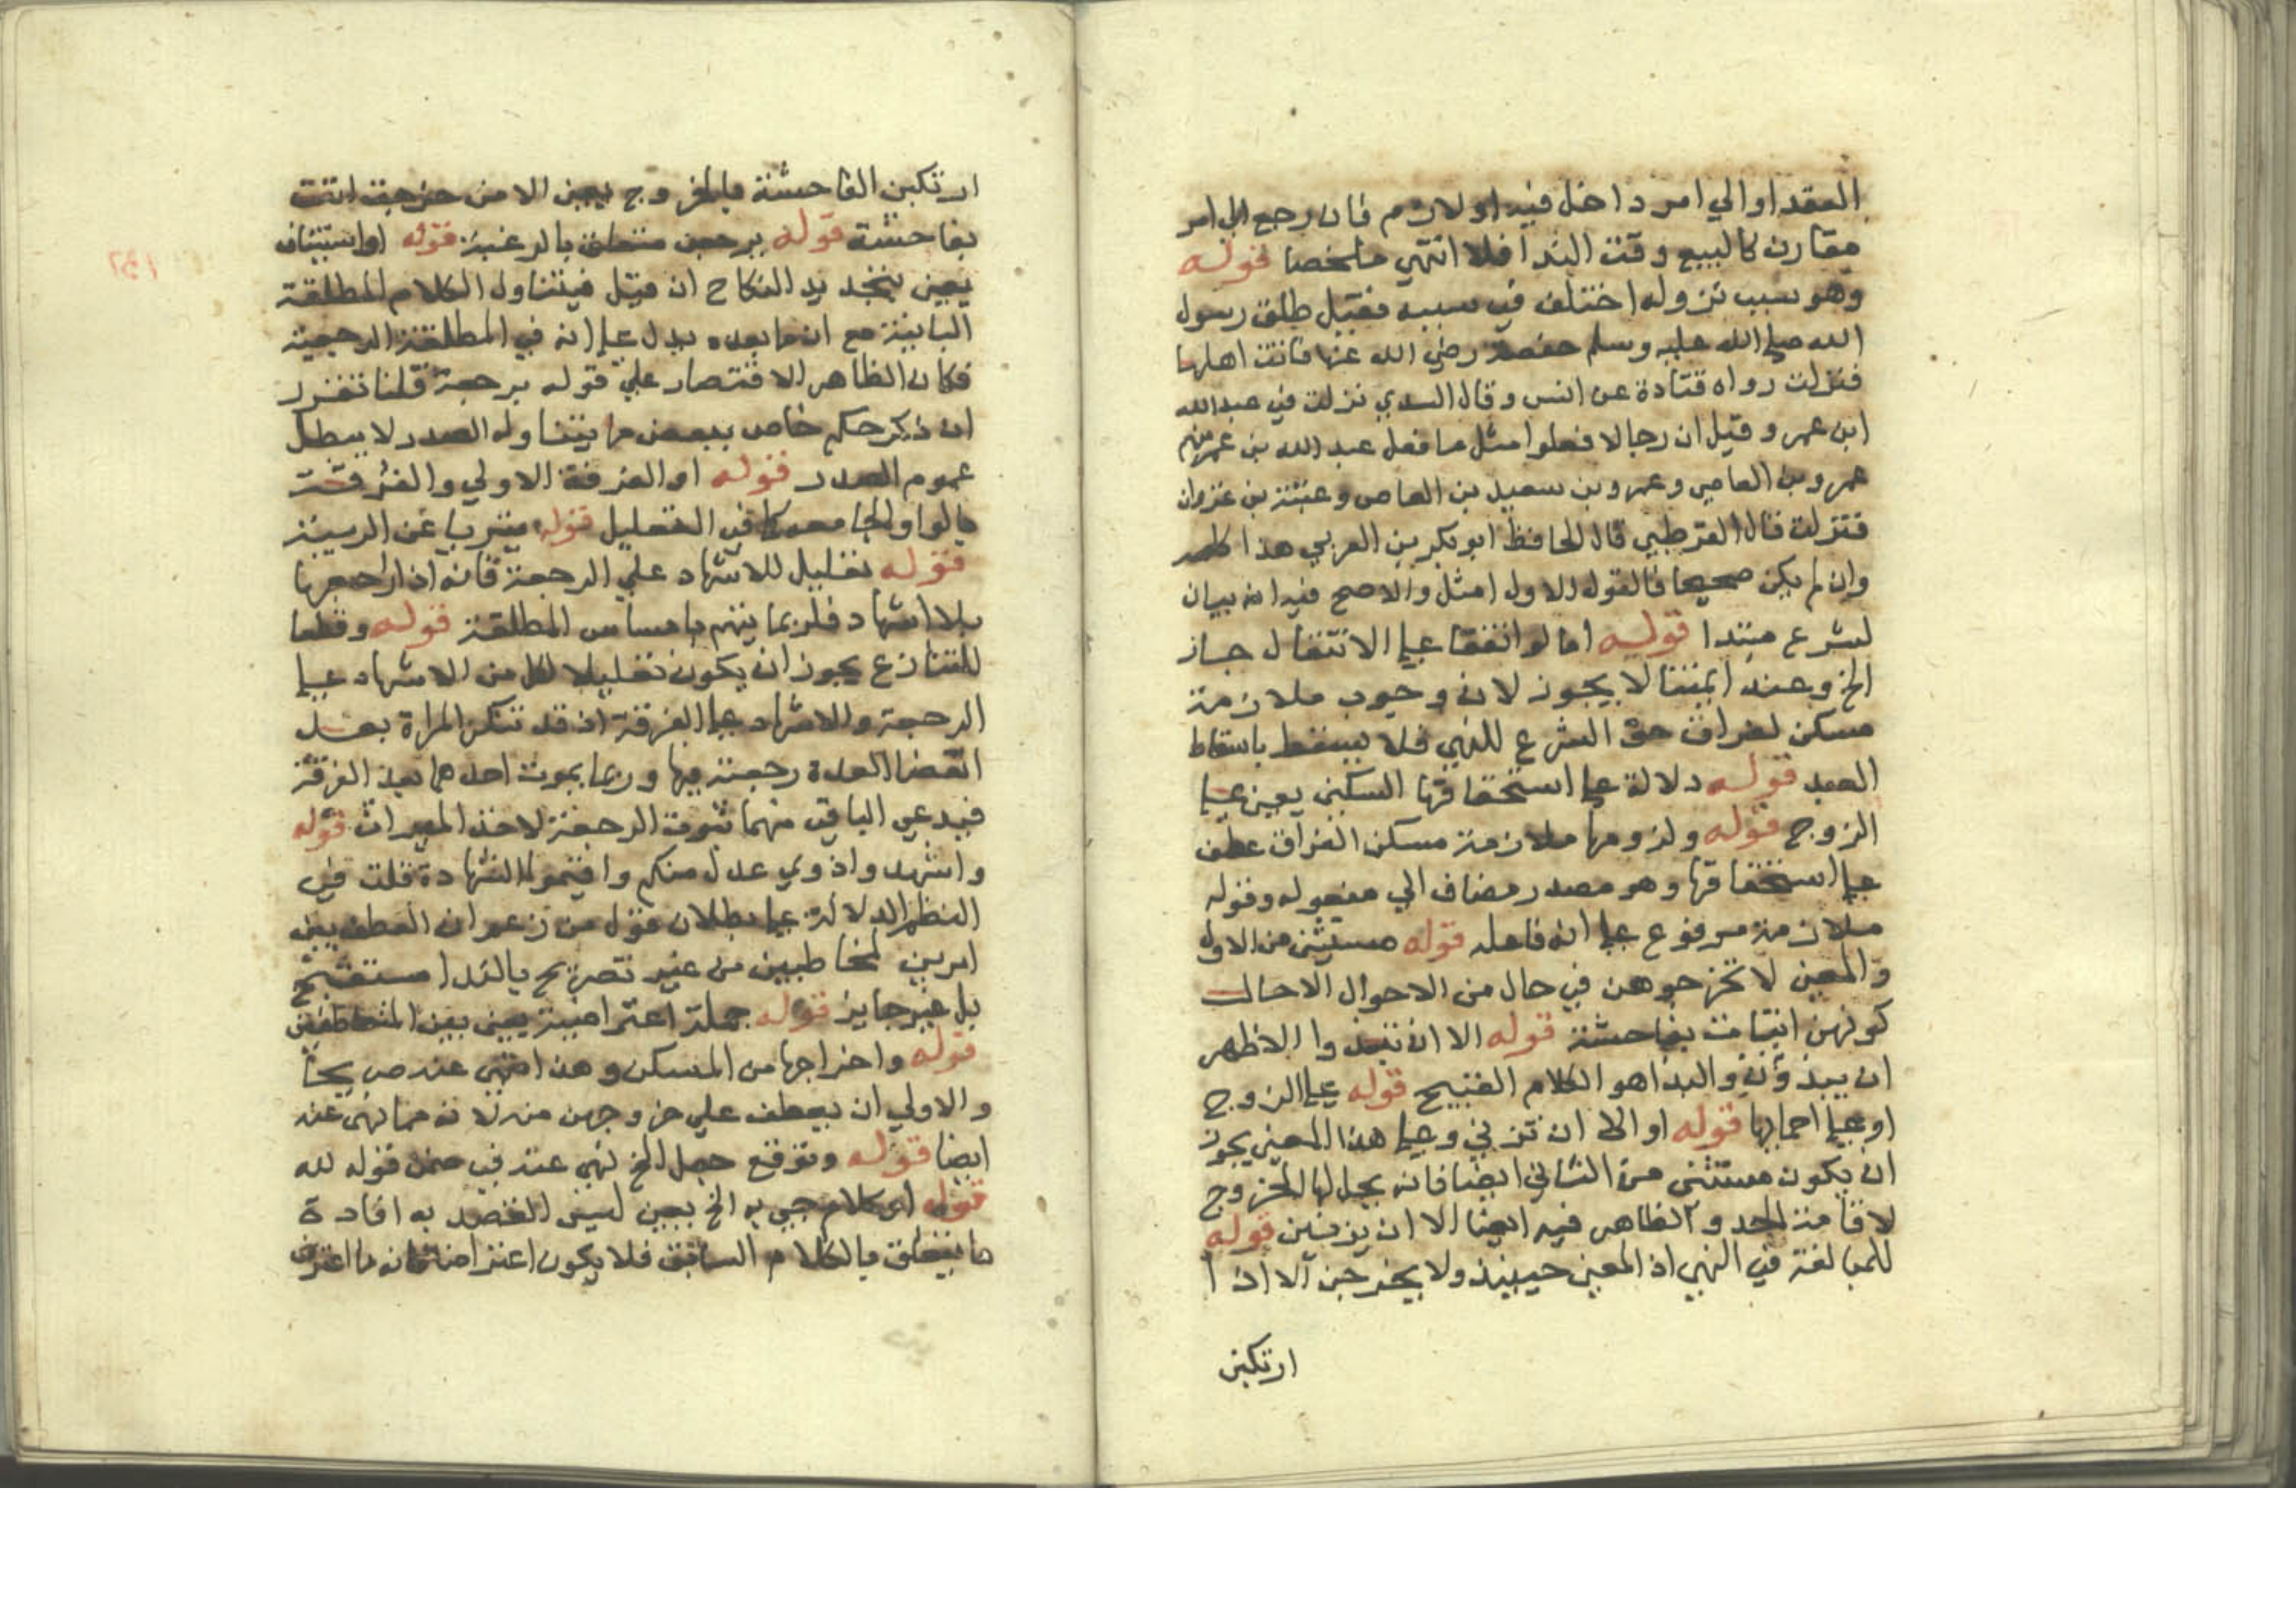 العقد او الي امر داخل فيه او لازم فان رجع الي امر
مقارن كالبيع وقت الندا فلا انتهي ملخصا قوله
وهو سبب نزوله اختلف في سببه فقيل طلق رسول
الله صلي الله عليه وسلم حفصة رضي الله عنها فاتت اهلها
فنزلت رواه قتادة عن انس وقال السدي نزلت في عبد الله
ابن عمر وقيل ان رجالا فعلوا مثل ما فعل عبد الله بن عمر منهم
عمرو بن العاص وعمرو بن سعيد بن العاص وعتبة بن غزوان
فنزلت قال القرطبي قال الحافظ ابو بكر بن العربي هذا كله
وان لم يكن صحيحا فالقول الاول امثل والاصح فيه انه بيان
لشرع مبتدا قوله اما لو اتفقا علي الانتقال جاز
الخ وعند ايمتنا لا يجوز لان وجوب ملازمة
مسكن الفراق حق الشرع للنهي فلا يسقط باسقاط
العبد قوله دلالة علي استحقاقها السكني يعني علي
الزوج قوله ولزومها ملازمة مسكن الفراق عطف
علي استحقاقها وهو مصدر مضاف الي مفعوله وقوله
ملازمة مرفوع علي انه فاعله قوله مستثني من الاول
والمعني لا تخرجوهن في حال من الاحوال الا حالت
كونهن اتيات بفاحشة قوله الا ان تبذوا الاظهر
ان يبذؤن والبذا هو الكلام القبيح قوله علي الزوج
او علي احمايها قوله او الا ان تزني وعلي هذا المعني يجوز
ان يكون مستثني من الثاني ايضا فانه يحل لها الخروج
لاقامة الحد والظاهر فيه ايضا الا ان يزنين قوله
للمبالغة في النهي اذ المعني حينيذ ولا يخرجن الا اذا
ارتكبن
ارتكبن الفاحشة بالخروج يعني الا من خرجت اتت
بفاحشة قوله برجعن متعلق بالرغبة قوله او استيناف
يعني بتجديد النكاح ان قيل فيتناول الكلام المطلقة
الباينة مع ان ما بعده يدل علي انه في المطلقة الرجعية
فكان الظاهر الاقتصار علي قوله برجعة قلنا تقرر
ان ذكر حكم خاص ببعض ما يتناوله الصدر لا يبطل
عموم الصدر قوله او الفرقة الاولي والفرقت
بالواو الجامعه كما في التعليل قوله تبريا عن الريبة
قوله تعليل للاشهاد علي الرجعة فانه اذا راجعها
بلا اشهاد فلربما يتهم بامساس المطلقة قوله وقطعا
للتنازع يجوز ان يكون تعليلا لكل من الاشهاد علي
الرجعة والاشهاد علي الفرقة اذ قد تنكر المراة بعد
انقضا العدة رجعته فيها وربما يموت احدهما بعد الفرقة
فيدعي الباقي منهما ثبوت الرجعة لاخذ الميراث قوله
واشهدوا ذوي عدل منكم واقيموا الشهادة قلت في
النظم الدلالة علي بطلان قول من زعم ان العطف بين
امرين لمخاطبين من غير تصريح بالندا مستقبح
بل غير جايز قوله جملة اعتراضية يعني بين المتعاطفين
قوله واخراجها من المسكن وهذا نهي عنه صريحا
والاولي ان يعطف علي خروجهن منه لانه مما نهي عنه
ايضا قوله وتوقع جعل الخ نهي عنه في ضمن قوله لله
قوله او كلام جي به الخ يعني ليس القصد به افادة
ما يتعلق بالكلام السابق فلا يكون اعتراضا فانه ما اعترض